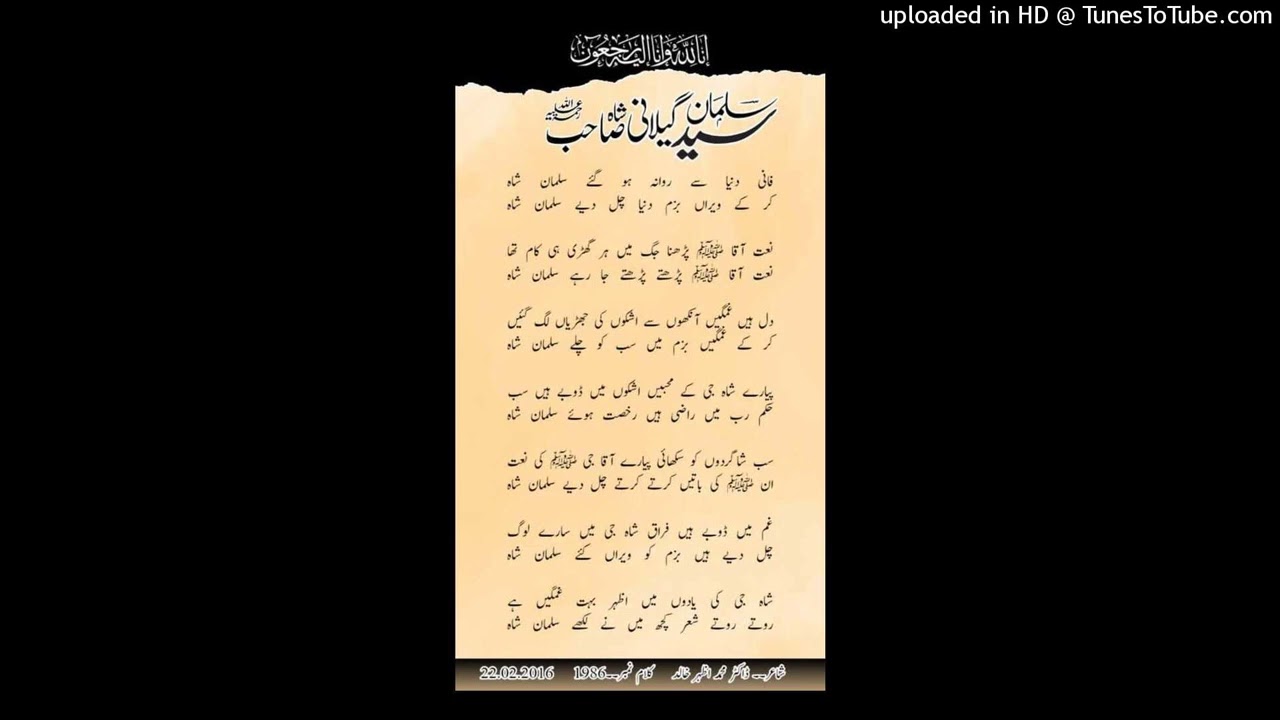 uploaded in HD @ TunesToTube.com
انا للہ وانا الیہ راجعون
سید سلمان گیلانی شاہ صاحب رحمۃ اللہ علیہ
فانی دنیا سے روانہ ہو گئے سلمان شاہ
کر کے ویراں بزم دنیا چل دیے سلمان شاہ
نعت آقا ﷺ پڑھنا جگ میں ہر گھڑی ہی کام تھا
نعت آقا ﷺ پڑھتے پڑھتے جا رہے سلمان شاہ
دل ہیں غمگیں آنکھوں سے اشکوں کی جھڑیاں لگ گئیں
کر کے غمگیں بزم میں سب کو چلے سلمان شاہ
پیارے شاہ جی کے محبیں اشکوں میں ڈوبے ہیں سب
حکم رب میں راضی ہیں رخصت ہوئے سلمان شاہ
سب شاگردوں کو سکھائی پیارے آقا جی ﷺ کی نعت
ان ﷺ کی باتیں کرتے کرتے چل دیے سلمان شاہ
غم میں ڈوبے ہیں فراق شاہ جی میں سارے لوگ
چل دیے ہیں بزم کو ویراں کئے سلمان شاہ
شاہ جی کی یادوں میں اظہر بہت غمگیں ہے
روتے روتے شعر کچھ میں نے لکھے سلمان شاہ
شاعر۔۔ ڈاکٹر محمد اظہر خالد کلام نمبر۔۔1986 22.02.2016